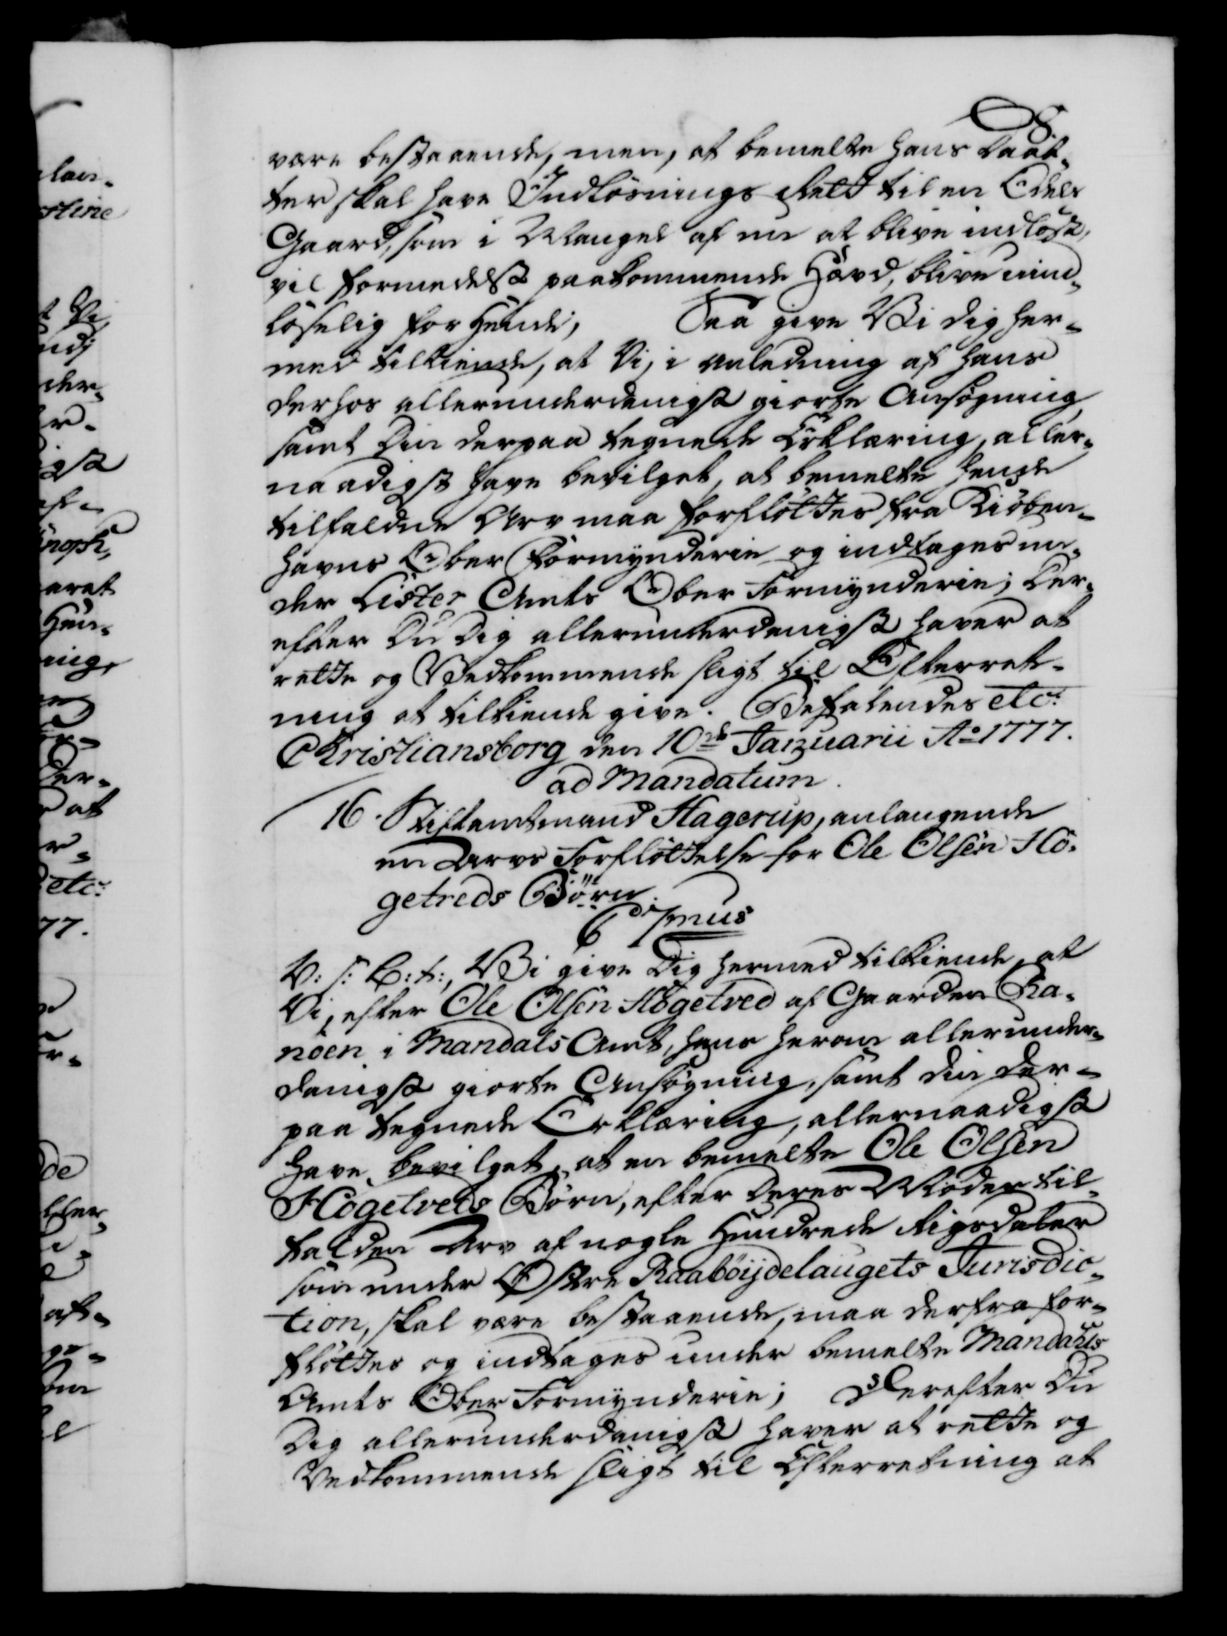 8.
være bestaaende, men, at bemelte hans Daat-
ter skal have Indløsnings Rett til en Odels
Gaard, som i Mangel af nu at blive indløst,
vil formedelst paakommende Hævd, blive uind-
løselig for Hende; Saa give Vi dig her-
med tilkiende, at Vi, i anledning af hans
derhos allerunderdanigst giorte Ansøgning
samt Din derpaa tegnede Erklæring, aller-
naadigst have bevilget, at bemelte hende
tilfaldne Arv maa forfløttes fra Kiøben-
havns Over Formynderie og indtages un-
der Lister Amts Over Formynderie; Der-
efter Du Dig allerunderdanigst haver at
rette og Vedkommende sligt til Efterret-
ning at tilkiende give. Befalendes etc.
Christiansborg den 10de Januarii Ao 1777.
ad Mandatum.
16. Stiftamtmand Hagerup, anlangende
en Arvs Forfløttelse for Ole Olsen Hö-
getreds Börn.
C 7mus
V: s: G: t:, Vi give Dig hermed tilkiende, at
Vi, efter Ole Olsen Högetved af Gaarden Ra-
nöen i Mandals Amt, hans herom allerunder-
danigst giorte Ansøgning, samt din der-
paa tegnede Erklæring, allernaadigst
have bevilget, at en bemelte Ole Olsen
Högetveds Børn, efter Deres Moder til-
falden Arv af nogle Hundrede Rigsdaler
som under Østre Raabøijdelaugets Jurisdic-
tion, skal være bestaaende, maa derfra for-
fløttes og indtages under bemelte Mandahls
Amts Over Formynderie; Derefter Du
Dig allerunderdanigst haver at rette og
Vedkommende sligt til Efterretning at